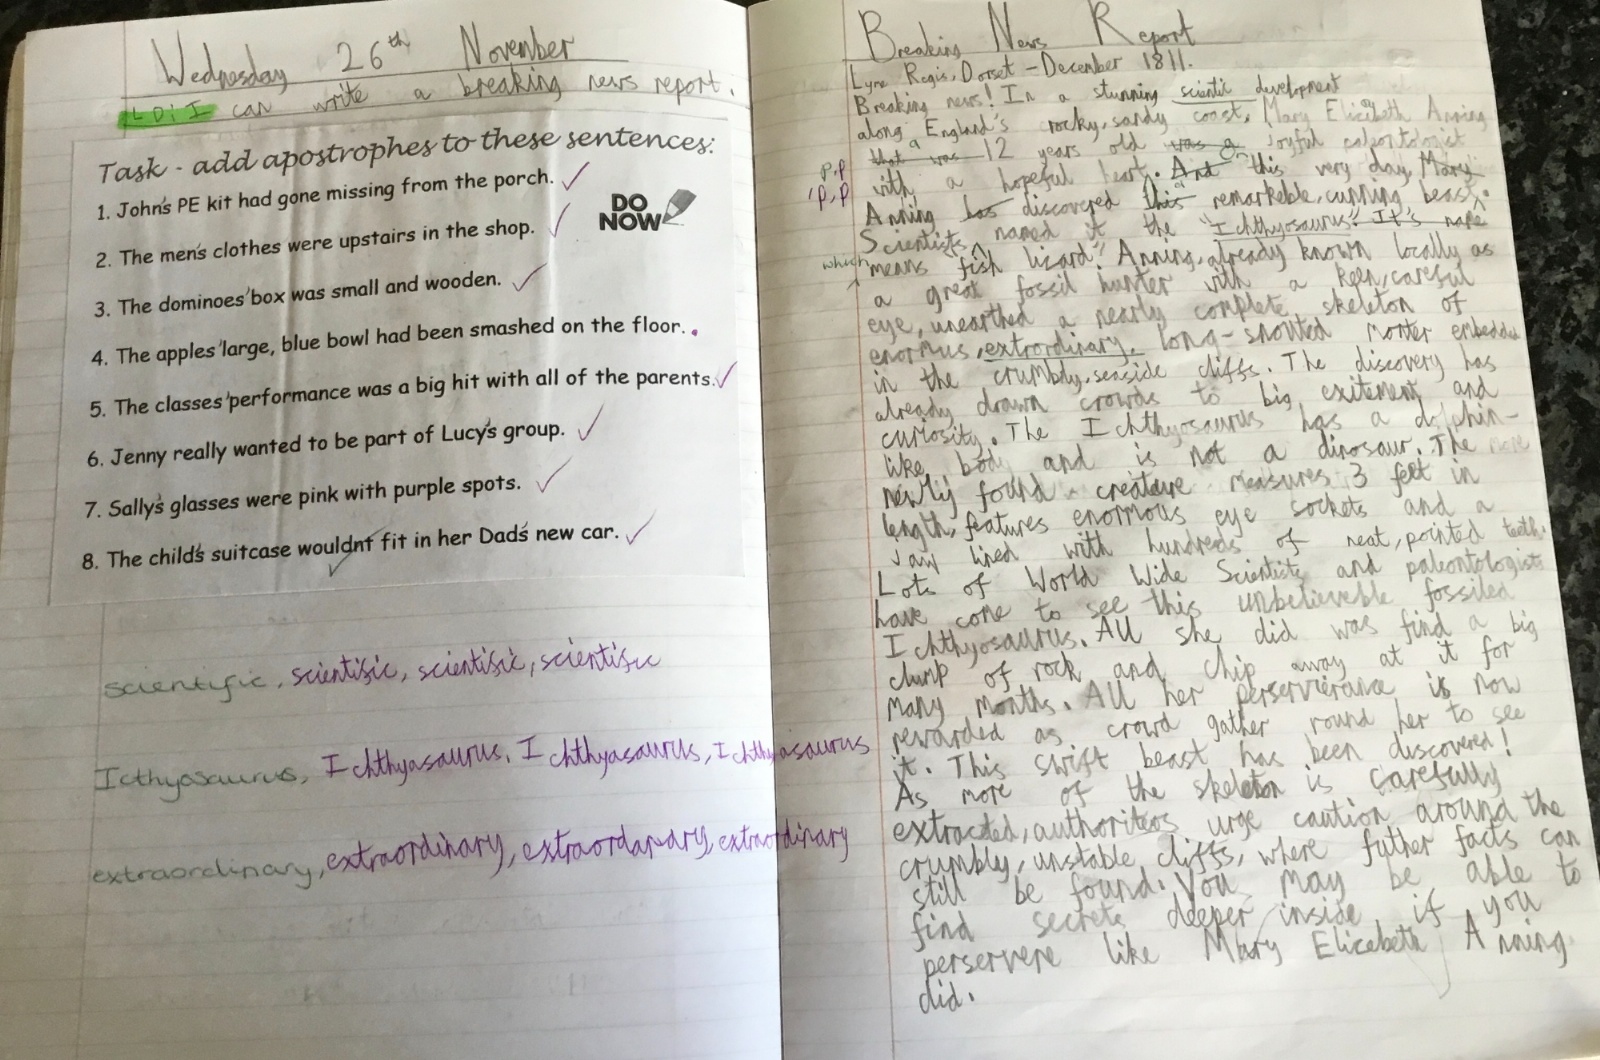 Wednesday 26th November
LO: I can write a breaking news report.
Task - add apostrophes to these sentences:
1. John's PE kit had gone missing from the porch.
2. The men's clothes were upstairs in the shop.
3. The dominoes' box was small and wooden.
4. The apples' large, blue bowl had been smashed on the floor.
5. The classes' performance was a big hit with all of the parents.
6. Jenny really wanted to be part of Lucy's group.
7. Sally's glasses were pink with purple spots.
8. The child's suitcase wouldn't fit in her Dad's new car.
DO
NOW
scientific, scientific, scientific, scientific
Icthyosaurus, Ichthyasaurus, Ichthyasaurus, Ichthyasaurus
extraordinary, extraordinary, extraordanary, extraordinary
Breaking News Report
Lyme Regis, Dorset - December 1811.
Breaking news! In a stunning scientic development
along England's rocky, sandy coast, Mary Elizabeth Anning
that was a 12 years old was a joyful
p.p
with a hopeful heart. And On this very day, Mary
'p,p
Anning has discovered this a remarkeble, cunning beast.
Scientists named it the "Ichthyosaurus". It's name
which
means fish lizard". Anning, already known locally as
a great fossil hunter with a keen, careful
eye, unearthed a nearly complete skeleton of
enormus, extrordinary, long-snouted embedded
in the crumbly, seaside cliffs. The discovery has
already drawn crowds to big exitement and
curiosity. The Ichthyosaurus has a dolphin-
like body and is not a dinosaur. The
newly found creature measures 3 feet in
length, features enormous eye sockets and a
Jaw lined with hundreds of neat, pointed teeth.
Lots of World Wide Scientists and paleontologists
have come to see this unbelievable fossiled
Ichthyosaurus. All she did was find a big
clump of rock and chip away at it for
many months. All her perservierance is now
rewarded as crowd gather round her to see
it. This swift beast has been discovered!
As more of the skeleton is carefully
extracted, authorities urge caution around the
crumbly, unstable cliffs, where futher facts can
still be found. You may be able to
find secrets deeper inside if you
perservere like Mary Elicebeth Anning
did.